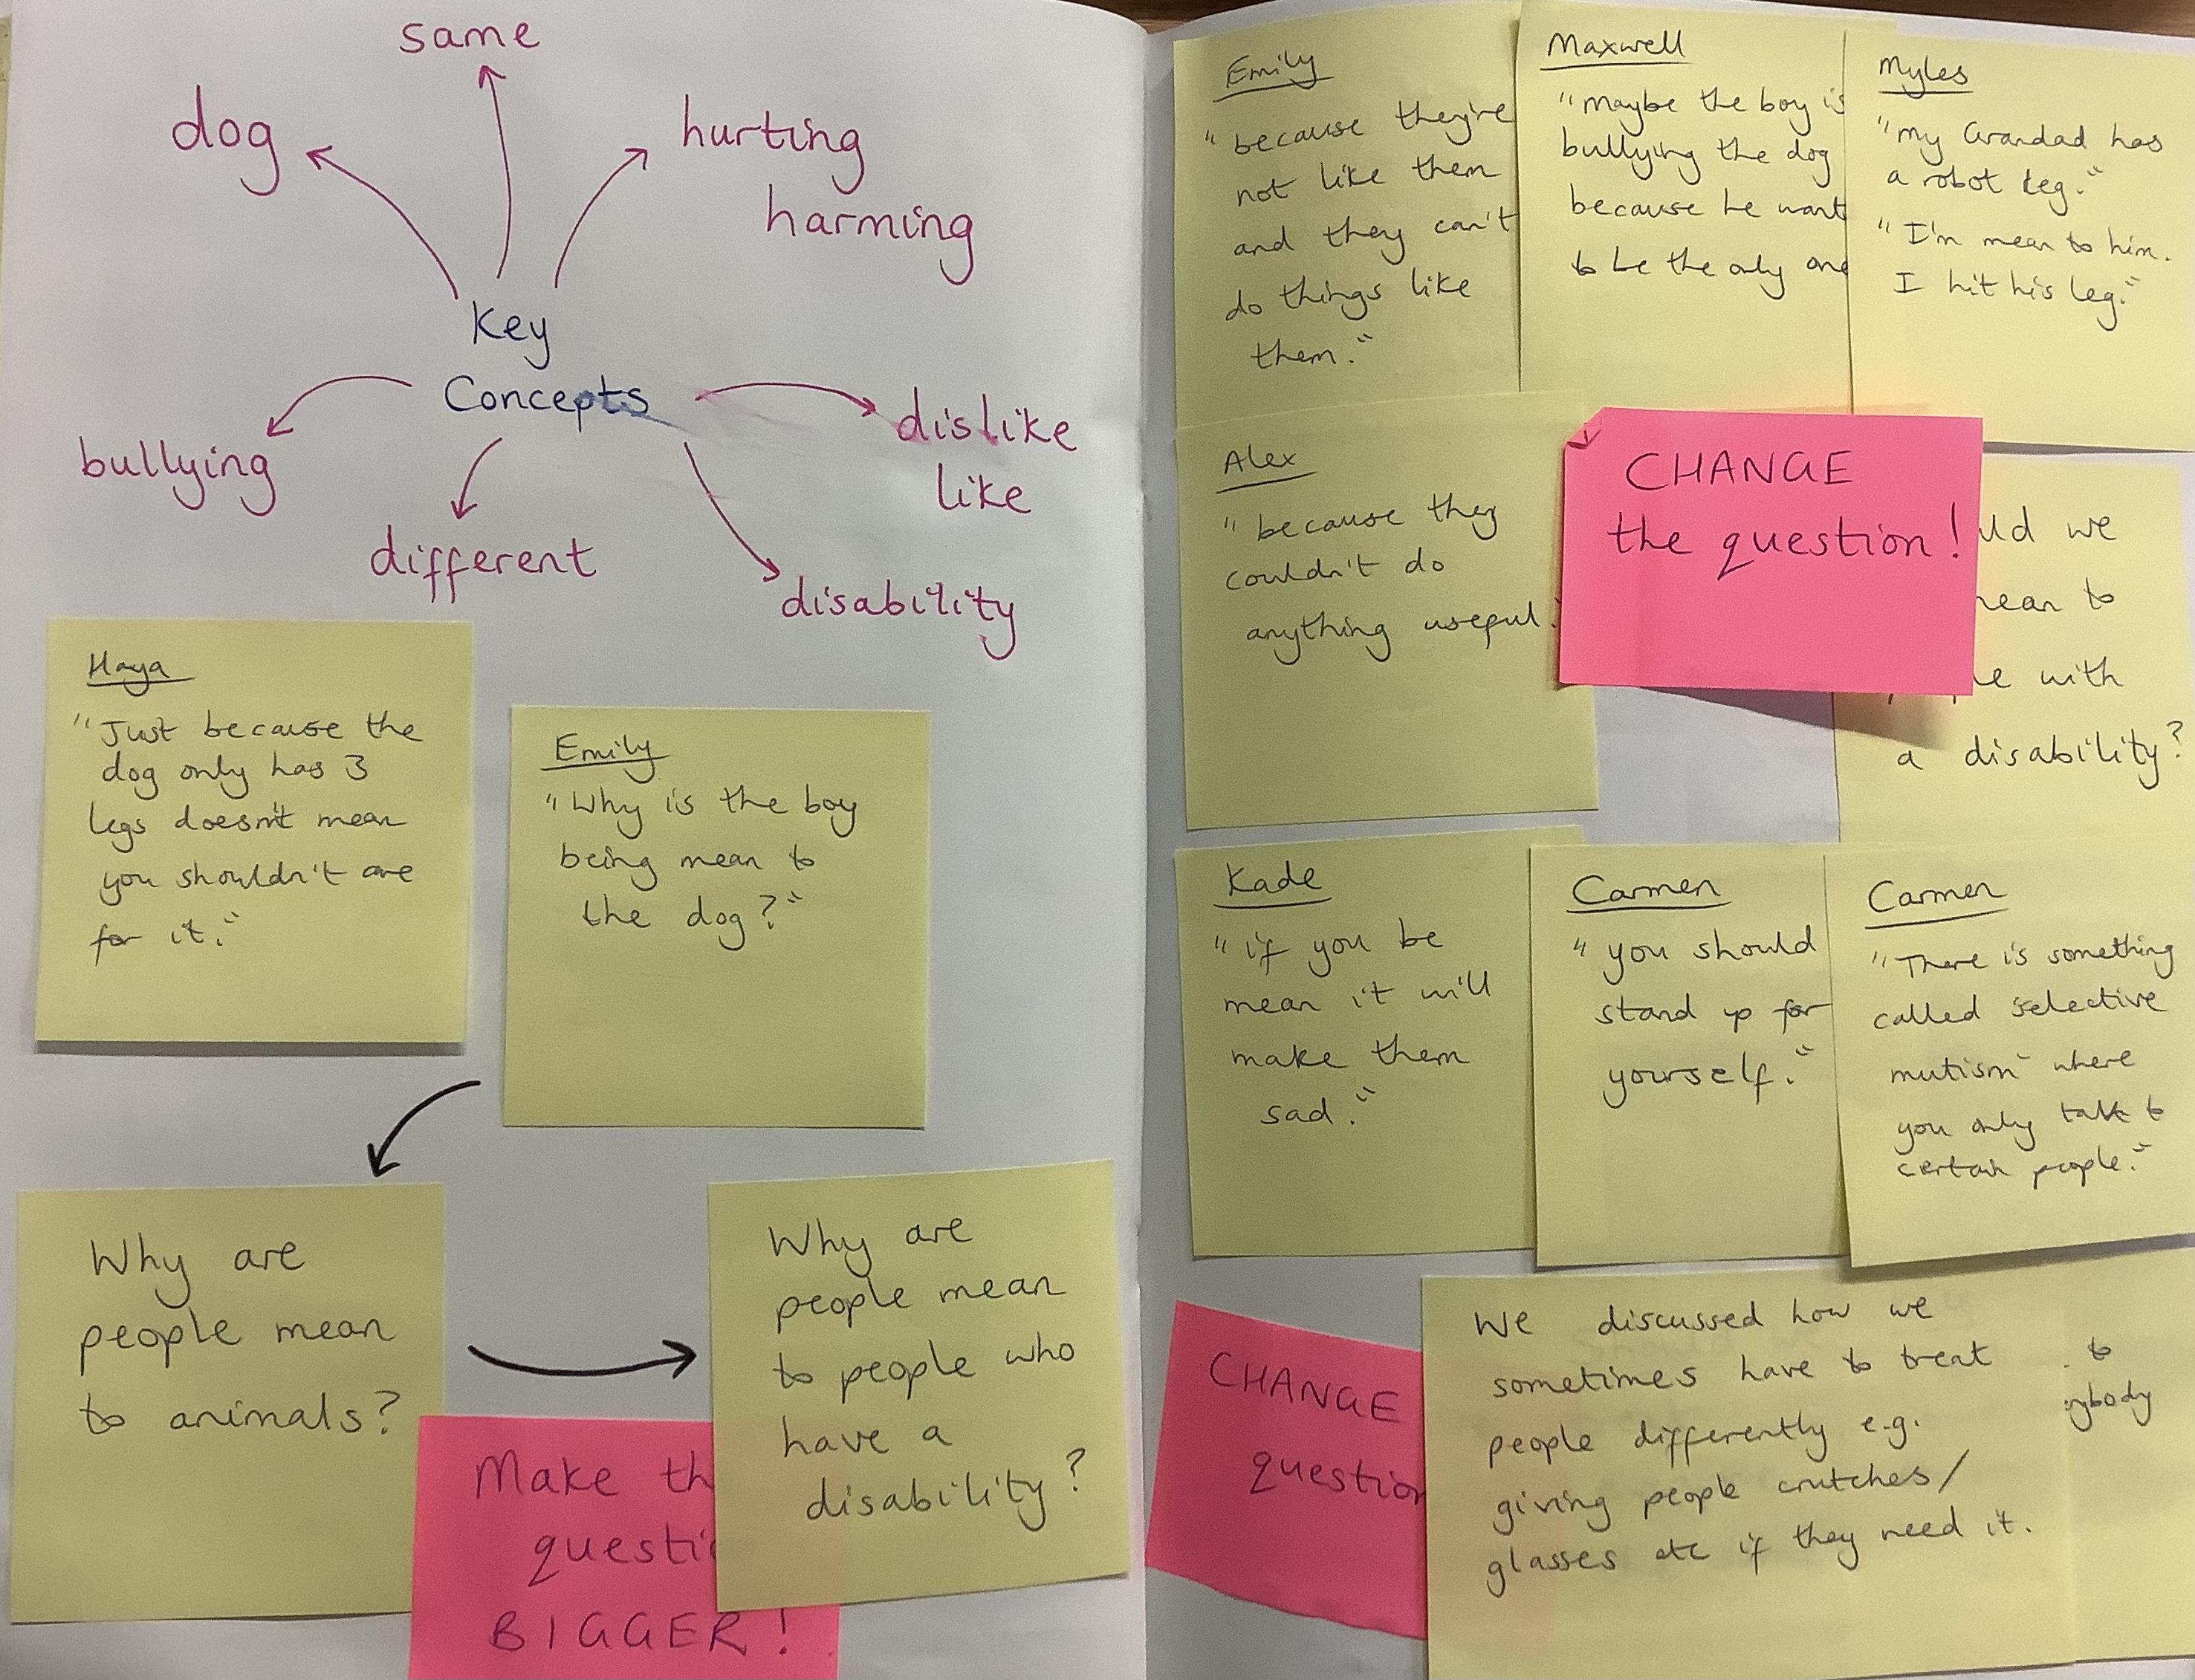 same
dog
hurting
harming
Key
Concepts
bullying
dislike
like
different
disability
Haya
"Just because the
dog only has 3
legs doesn't mean
you shouldn't are
for it."
Emily
"Why is the boy
being mean to
the dog?"
Why are
people mean
to animals?
Make th
questi
BIGGER!
Why are
people mean
to people who
have a
disability?
Emily
"because they're
not like them
and they can't
do things like
them."
Maxwell
"Maybe the boy is
bullying the dog
because he want
to be the only one
Myles
"my Grandad has
a robot leg."
"I'm mean to him.
I hit his leg."
Alex
"because they
couldn't do
anything useful."
CHANGE
the question!
uld we
mean to
le with
a disability?
Kade
"if you be
mean it will
make them
sad."
Carmen
"you should
stand up for
yourself."
Carmen
"There is something
called 'selective
mutism' where
you only talk to
certain people."
CHANGE
question
We discussed how we
sometimes have to treat
people differently e.g.
giving people crutches/
glasses etc if they need it.
to
ybody